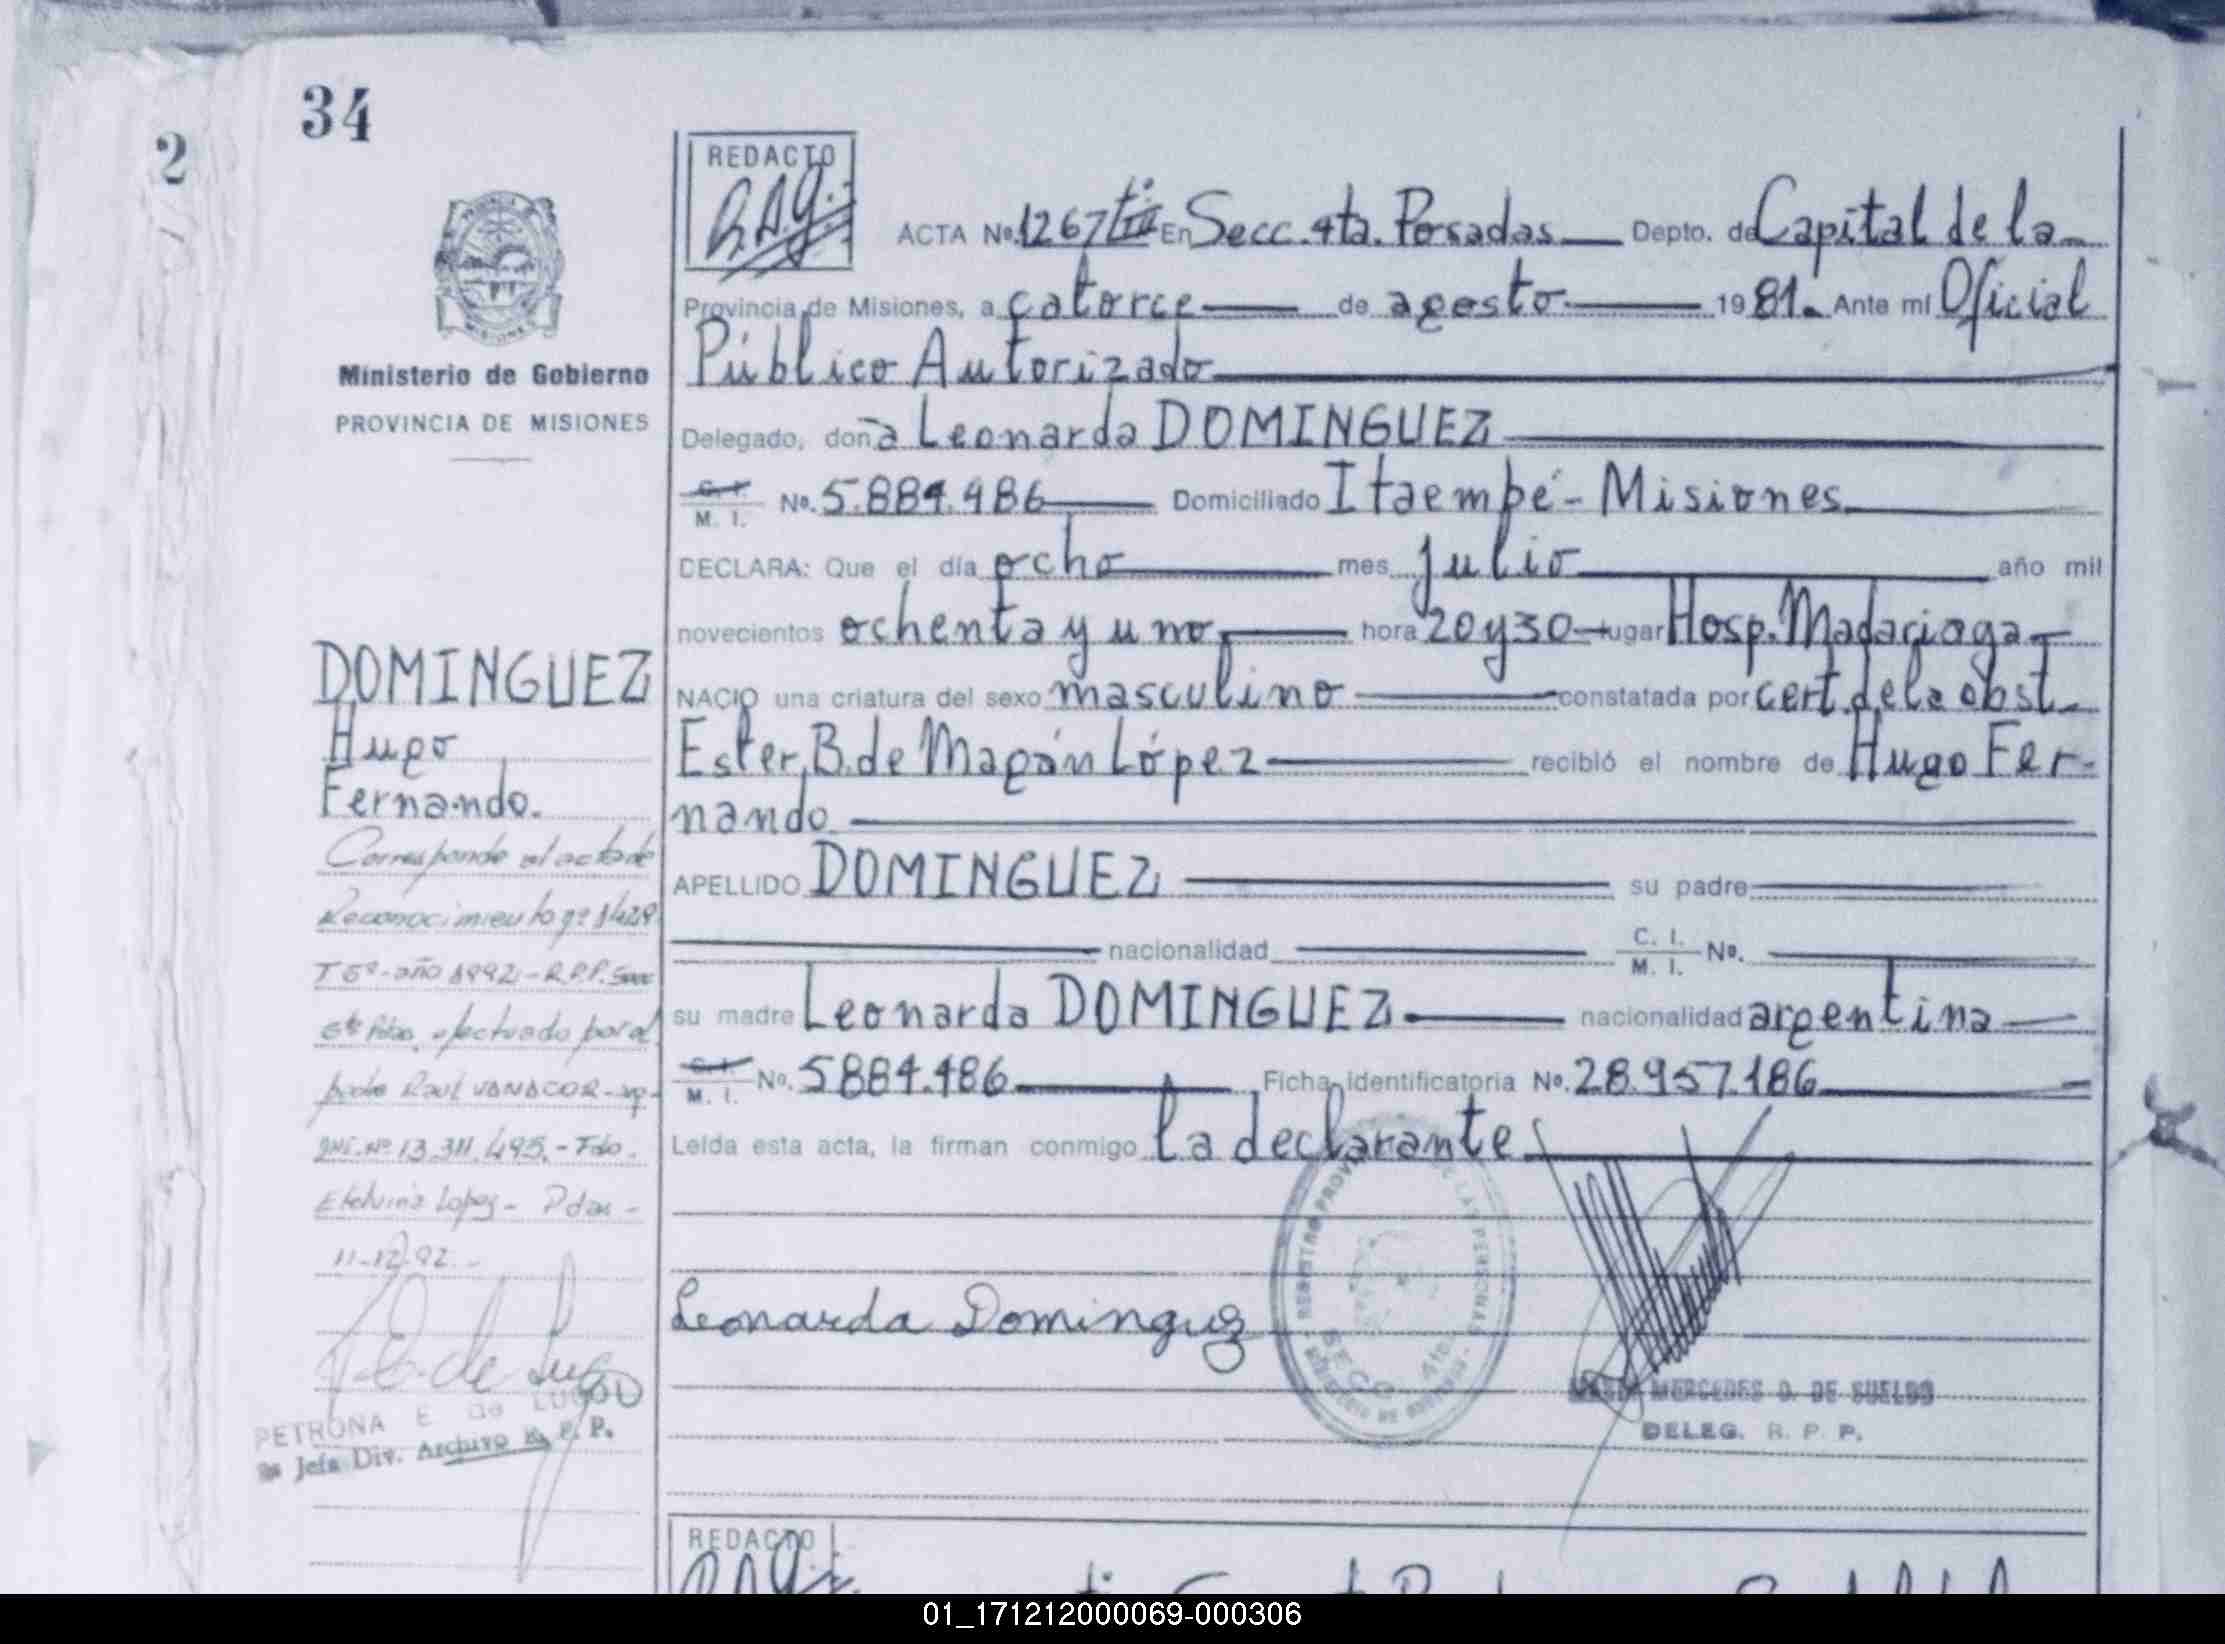 34
2
REDACTO
ACTA No. 1267 En Secc. 4ta. Posadas Depto. de Capital de la
Provincia de Misiones, a catorce de agosto 1981. Ante mí Oficial
Público Autorizado
Delegado, doña Leonarda DOMINGUEZ
C. I. M. I. No. 5.884.486 Domiciliado Itaembé - Misiones
DECLARA: Que el día ocho mes julio año mil
novecientos ochenta y uno, hora 20 y 30 lugar Hosp. Madariaga
NACIO una criatura del sexo masculino constatada por cert. de la obst.
Ester B. de Magán López recibió el nombre de Hugo Fer-
nando
APELLIDO DOMINGUEZ su padre
nacionalidad C. I. M. I. No.
su madre Leonarda DOMINGUEZ nacionalidad argentina
C. I. M. I. No. 5884.486 Ficha identificatoria No. 28.957.186
Leída esta acta, la firman conmigo la declarante
Leonarda Dominguez
MERCEDES D. DE SUELDO
DELEG. R. P. P.
Ministerio de Gobierno
PROVINCIA DE MISIONES
DOMINGUEZ
Hugo
Fernando.
Corresponde al acta de
Reconocimiento nº 1429
T 5º - año 1992 - R.P.P. Secc
efectuado por el
padre Raul VANACOR
DNI. Nº 13.311.495. - Fdo.
Etelvina Lopez - Pdas -
11-12-92.-
PETRONA E de LUGO
Jefa Div. Archivo R. P. P.
REDACTO
01_171212000069-000306